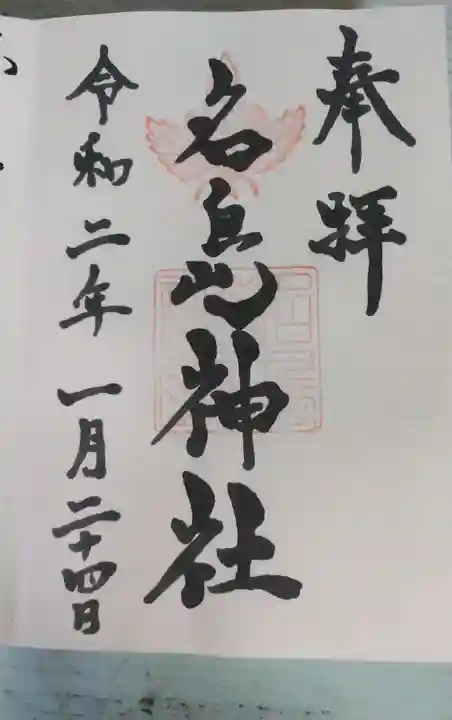 奉拝
名島神社
令和二年一月二十四日